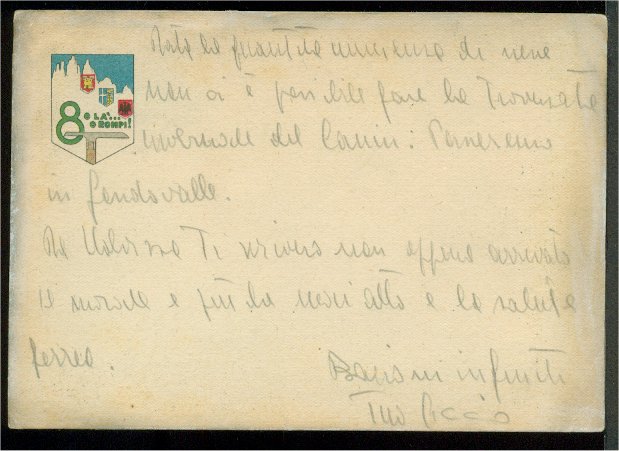 8
O LÀ...
O ROMPI!
Data la quantità immensa di neve
non ci è possibile fare la Traversata
invernale del Canin: Passeremo
in fondovalle.
Da Ti scriverò non appena arrivato
Il morale è più che mai alto e la salute
ferrea.
Bacioni infiniti
Tuo